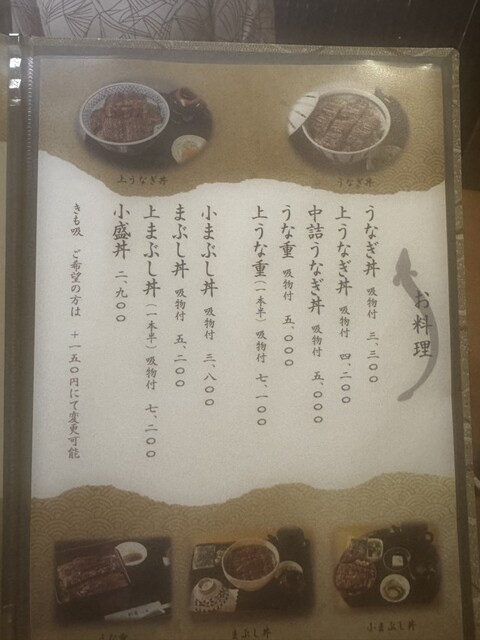 お料理
うなぎ丼 吸物付 三、三〇〇
上うなぎ丼 吸物付 四、二〇〇
中詰うなぎ丼 吸物付 五、〇〇〇
うな重 吸物付 五、〇〇〇
上うな重(一本半)吸物付 七、一〇〇
小まぶし丼 吸物付 三、八〇〇
まぶし丼 吸物付 五、二〇〇
上まぶし丼(一本半)吸物付 七、二〇〇
小盛丼 二、九〇〇
きも吸 ご希望の方は +一五〇円にて変更可能
うなぎ丼
上うなぎ丼
小まぶし丼
まぶし丼